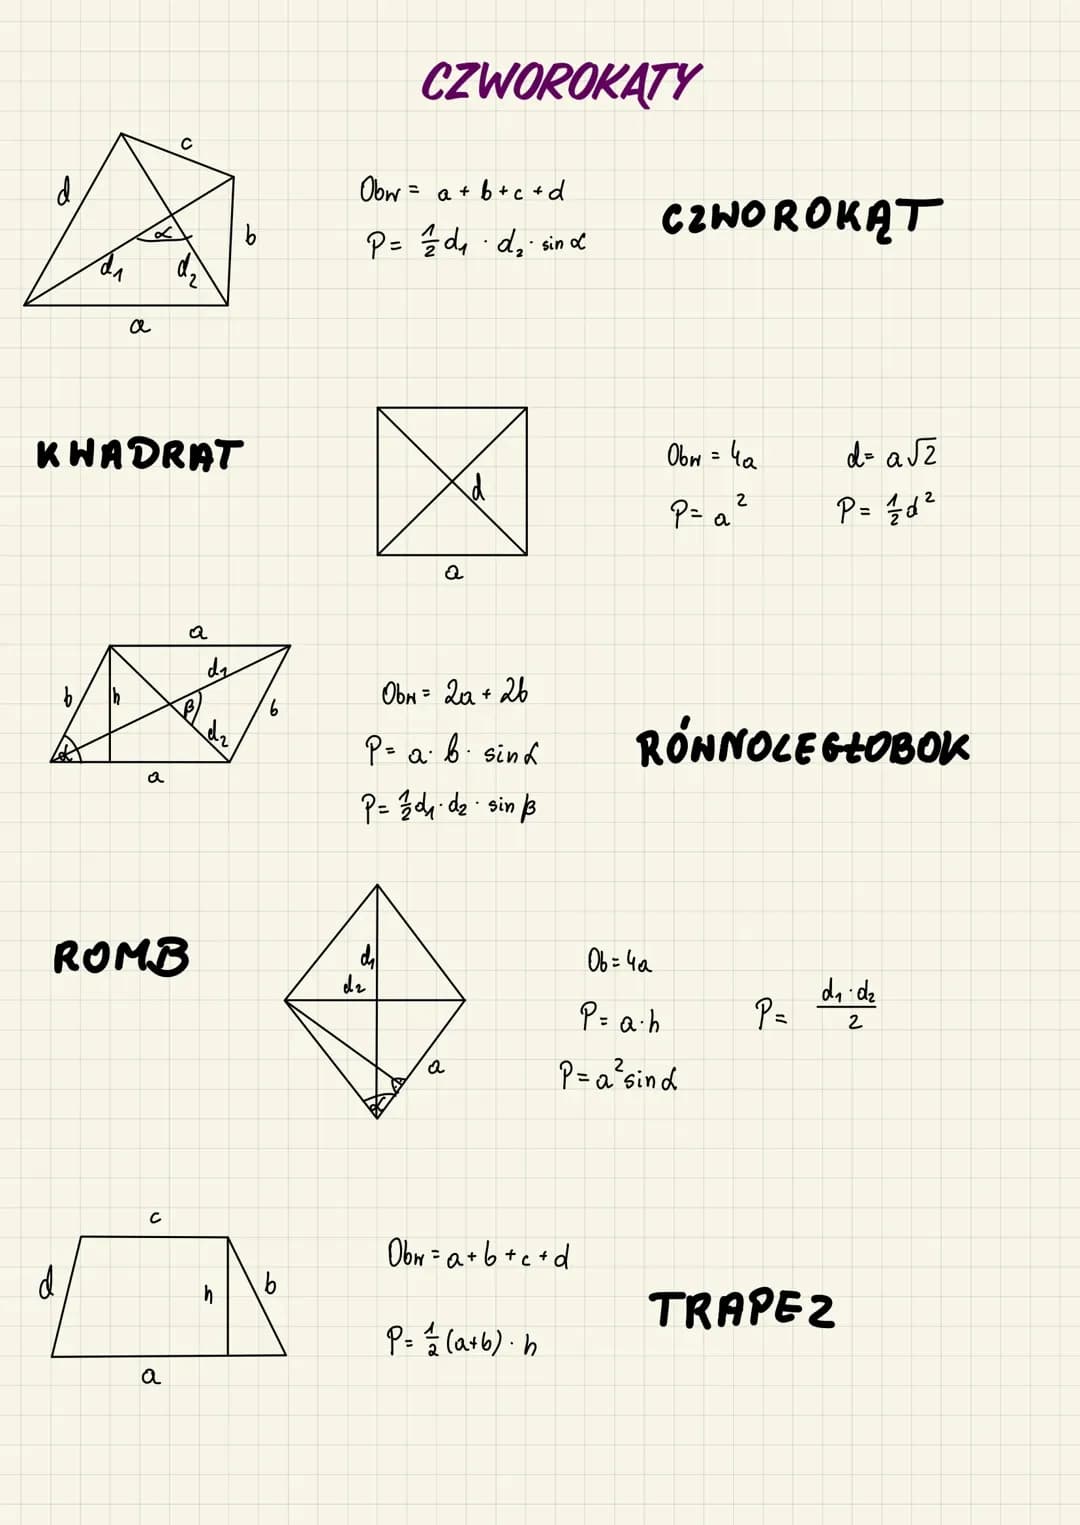 CZWOROKĄTY
c
d
b
α
d₁
d₂
a
Obw = a + b + c + d
P = 1/2 d₁ · d₂ · sin α
CZWOROKĄT
KWADRAT
d
a
Obw = 4a
d = a√2
P = a²
P = 1/2 d²
a
d₁
b
h
β
b
d₂
α
a
Obw = 2a + 2b
P = a · b · sin α
P = 1/2 d₁ · d₂ · sin β
RÓWNOLEGŁOBOK
ROMB
d₁
d₂
a
α
Ob = 4a
P = a · h
P = d₁ · d₂ / 2
P = a² sin α
c
d
h
b
a
Obw = a + b + c + d
P = 1/2 (a+b) · h
TRAPEZ